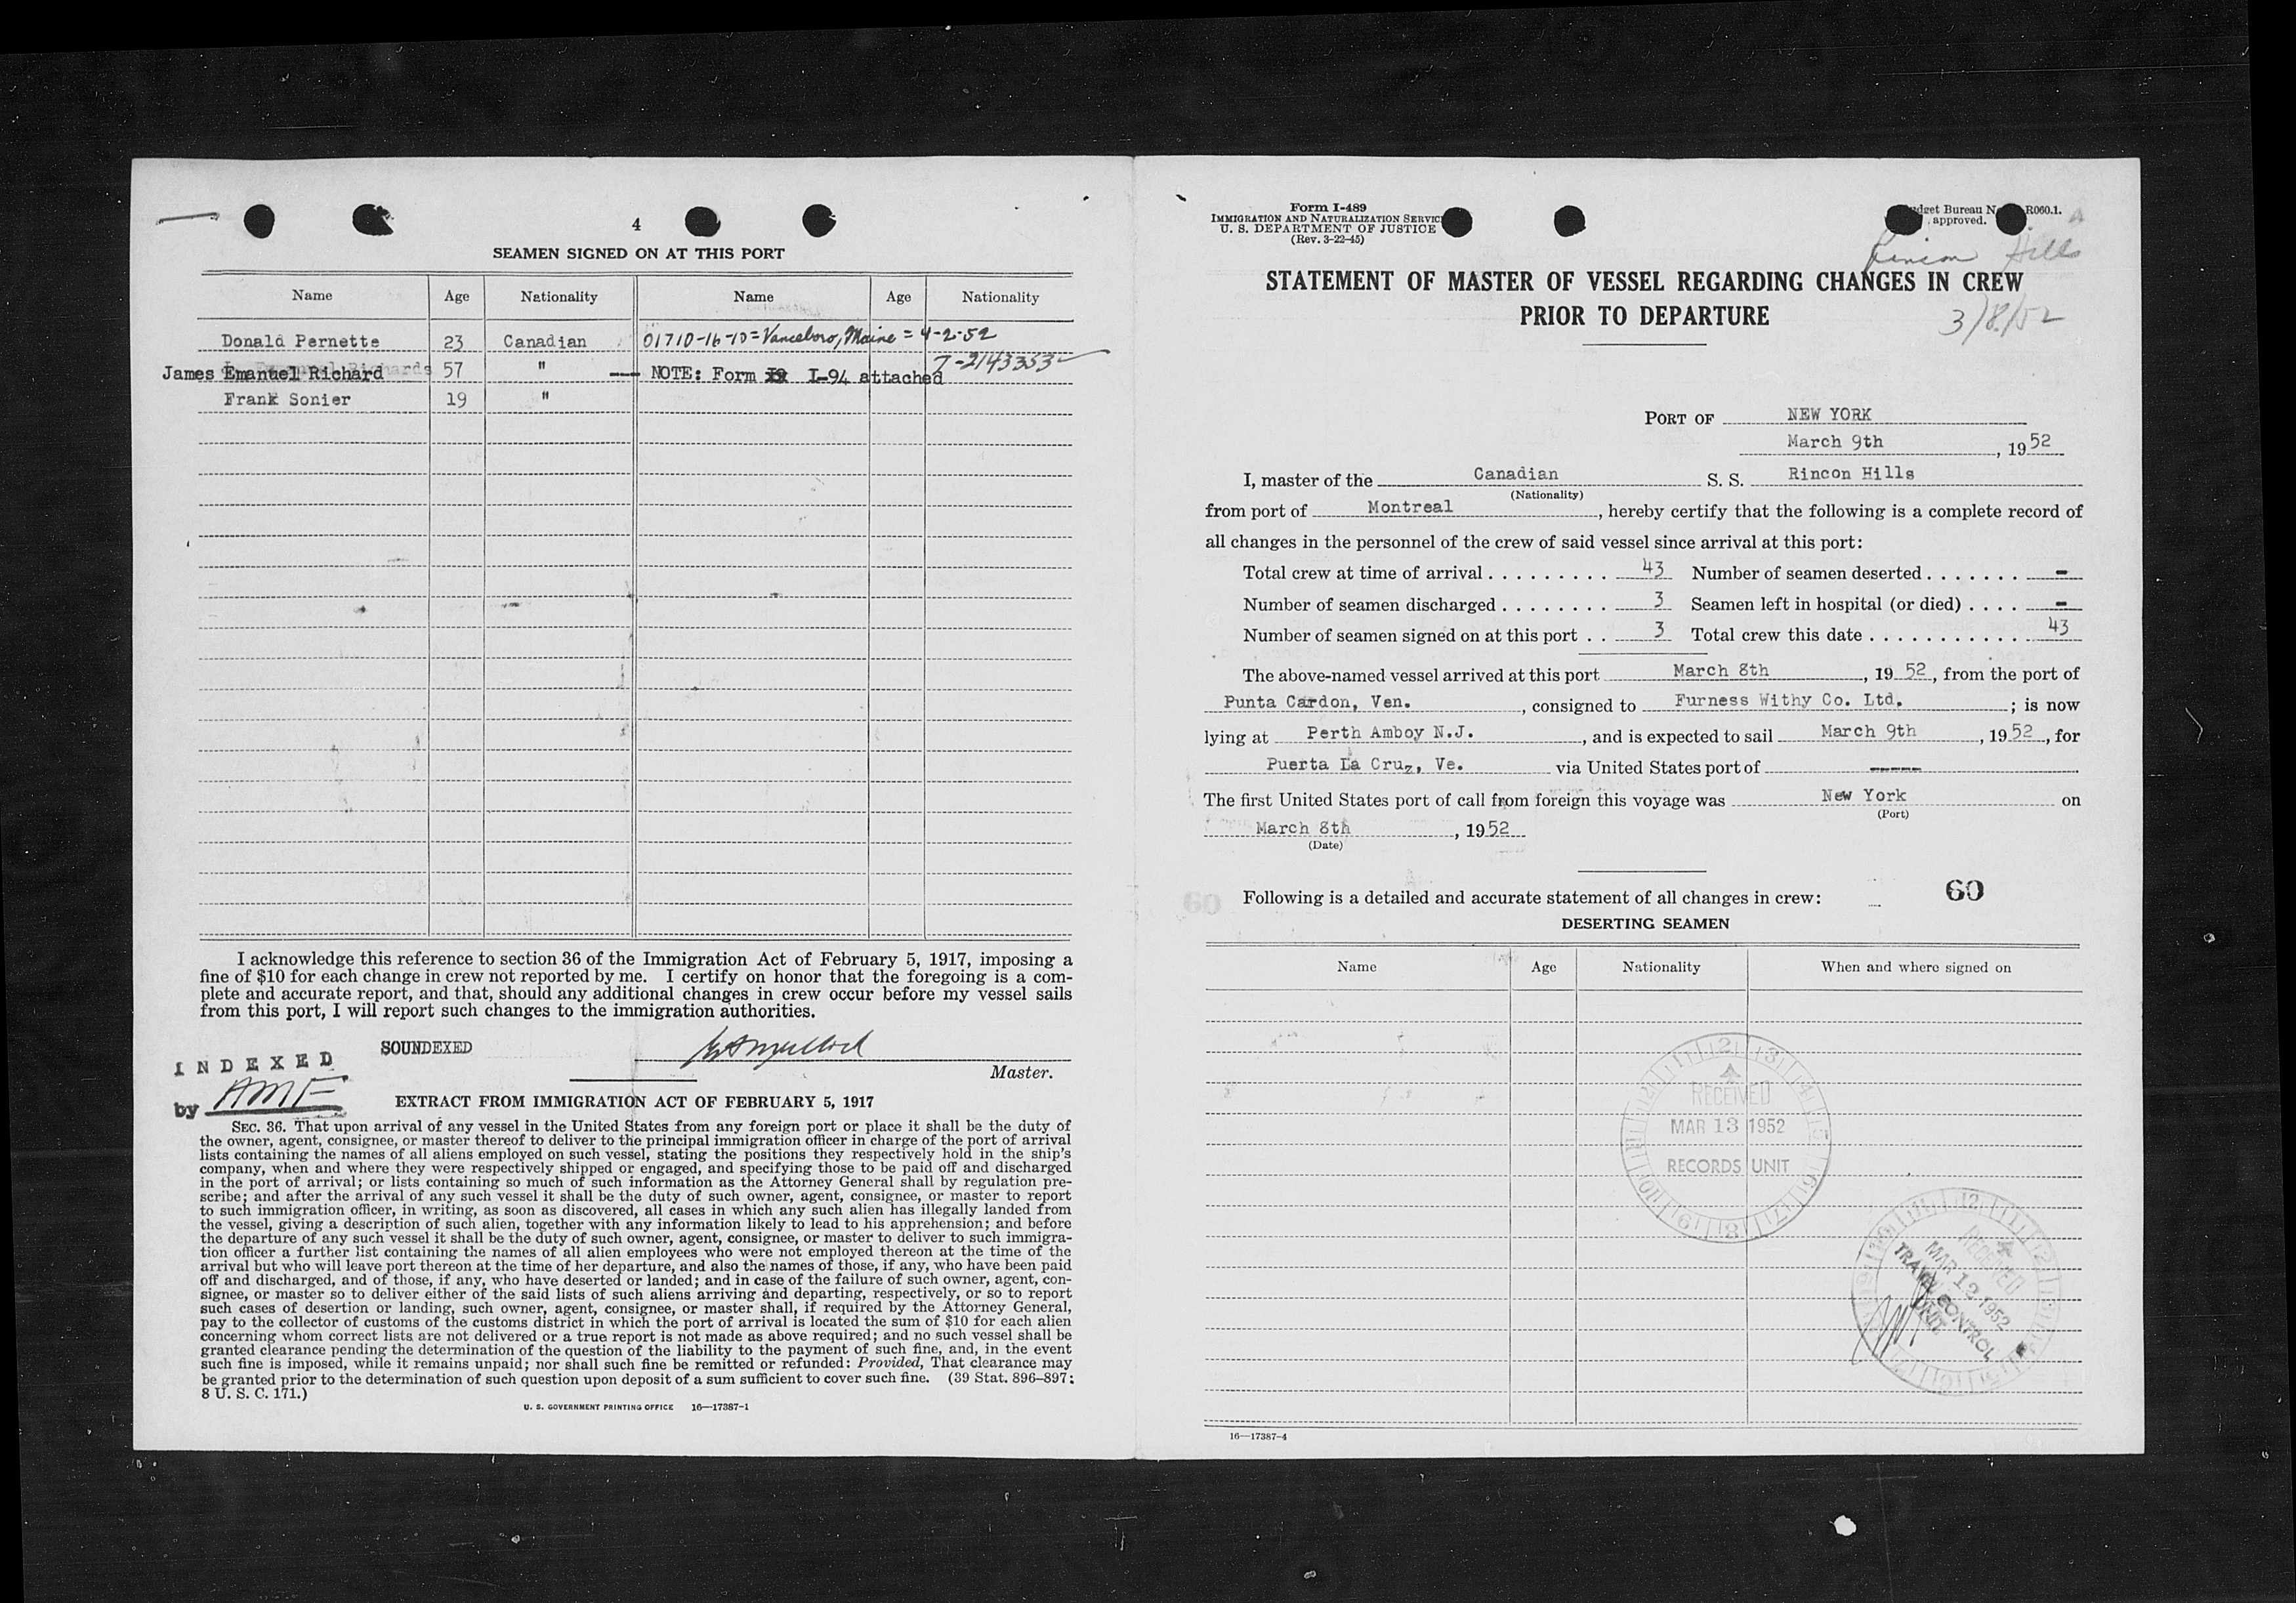 4
SEAMEN SIGNED ON AT THIS PORT
Name Age Nationality Name Age Nationality
Donald Pernette 23 Canadian 01710-16-10 = Vanceboro, Maine = 4-2-52
7-2143353
James Emanuel Richard 57 " NOTE: Form I-94 attached
Frank Sonier 19 "
I acknowledge this reference to section 36 of the Immigration Act of February 5, 1917, imposing a
fine of $10 for each change in crew not reported by me. I certify on honor that the foregoing is a com-
plete and accurate report, and that, should any additional changes in crew occur before my vessel sails
from this port, I will report such changes to the immigration authorities.
SOUNDEXED
INDEXED
by AMF
Master.
EXTRACT FROM IMMIGRATION ACT OF FEBRUARY 5, 1917
SEC. 36. That upon arrival of any vessel in the United States from any foreign port or place it shall be the duty of
the owner, agent, consignee, or master thereof to deliver to the principal immigration officer in charge of the port of arrival
lists containing the names of all aliens employed on such vessel, stating the positions they respectively hold in the ship's
company, when and where they were respectively shipped or engaged, and specifying those to be paid off and discharged
in the port of arrival; or lists containing so much of such information as the Attorney General shall by regulation pre-
scribe; and after the arrival of any such vessel it shall be the duty of such owner, agent, consignee, or master to report
to such immigration officer, in writing, as soon as discovered, all cases in which any such alien has illegally landed from
the vessel, giving a description of such alien, together with any information likely to lead to his apprehension; and before
the departure of any such vessel it shall be the duty of such owner, agent, consignee, or master to deliver to such immigra-
tion officer a further list containing the names of all alien employees who were not employed thereon at the time of the
arrival but who will leave port thereon at the time of her departure, and also the names of those, if any, who have been paid
off and discharged, and of those, if any, who have deserted or landed; and in case of the failure of such owner, agent, con-
signee, or master so to deliver either of the said lists of such aliens arriving and departing, respectively, or so to report
such cases of desertion or landing, such owner, agent, consignee, or master shall, if required by the Attorney General,
pay to the collector of customs of the customs district in which the port of arrival is located the sum of $10 for each alien
concerning whom correct lists are not delivered or a true report is not made as above required; and no such vessel shall be
granted clearance pending the determination of the question of the liability to the payment of such fine, and, in the event
such fine is imposed, while it remains unpaid; nor shall such fine be remitted or refunded: Provided, That clearance may
be granted prior to the determination of such question upon deposit of a sum sufficient to cover such fine. (39 Stat. 896–897;
8 U. S. C. 171.)
U. S. GOVERNMENT PRINTING OFFICE 16—17387-1
Form I-489
IMMIGRATION AND NATURALIZATION SERVICE
U. S. DEPARTMENT OF JUSTICE
(Rev. 3-22-45)
R060.1.
approved.
Rincon Hills
STATEMENT OF MASTER OF VESSEL REGARDING CHANGES IN CREW
PRIOR TO DEPARTURE
3/8/52
PORT OF NEW YORK
March 9th, 1952
I, master of the Canadian S. S. Rincon Hills
(Nationality)
from port of Montreal, hereby certify that the following is a complete record of
all changes in the personnel of the crew of said vessel since arrival at this port:
Total crew at time of arrival . . . . . . . . . 43 Number of seamen deserted . . . . . . . -
Number of seamen discharged . . . . . . . . 3 Seamen left in hospital (or died) . . . . -
Number of seamen signed on at this port . . 3 Total crew this date . . . . . . . . . . . . 43
The above-named vessel arrived at this port March 8th, 1952, from the port of
Punta Cardon, Ven., consigned to Furness Withy Co. Ltd.; is now
lying at Perth Amboy N.J., and is expected to sail March 9th, 1952, for
Puerta La Cruz, Ve. via United States port of -----
The first United States port of call from foreign this voyage was New York on
(Port)
March 8th, 1952
(Date)
Following is a detailed and accurate statement of all changes in crew: 60
DESERTING SEAMEN
Name Age Nationality When and where signed on
RECEIVED
MAR 13 1952
RECORDS UNIT
RECEIVED
MAR 12 1952
TRAVEL CONTROL
UNIT
16—17387-4